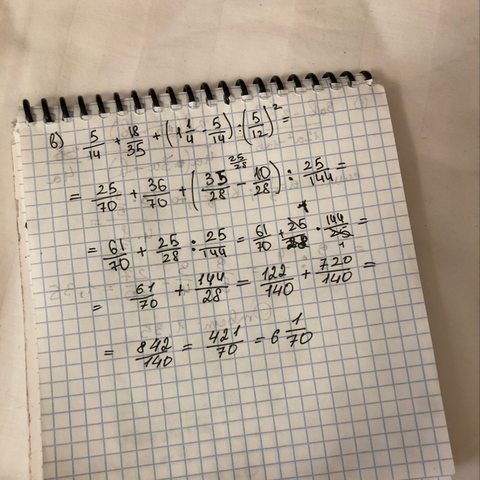 в) 5/14 + 18/35 + (1 1/4 - 5/14) : (5/12)² =
= 25/70 + 36/70 + (35/28 - 10/28) 25/28 : 25/144 =
= 61/70 + 25/28 : 25/144 = 61/70 + 25/28 · 144/25 =
= 61/70 + 144/28 = 122/140 + 720/140 =
= 842/140 = 421/70 = 6 1/70